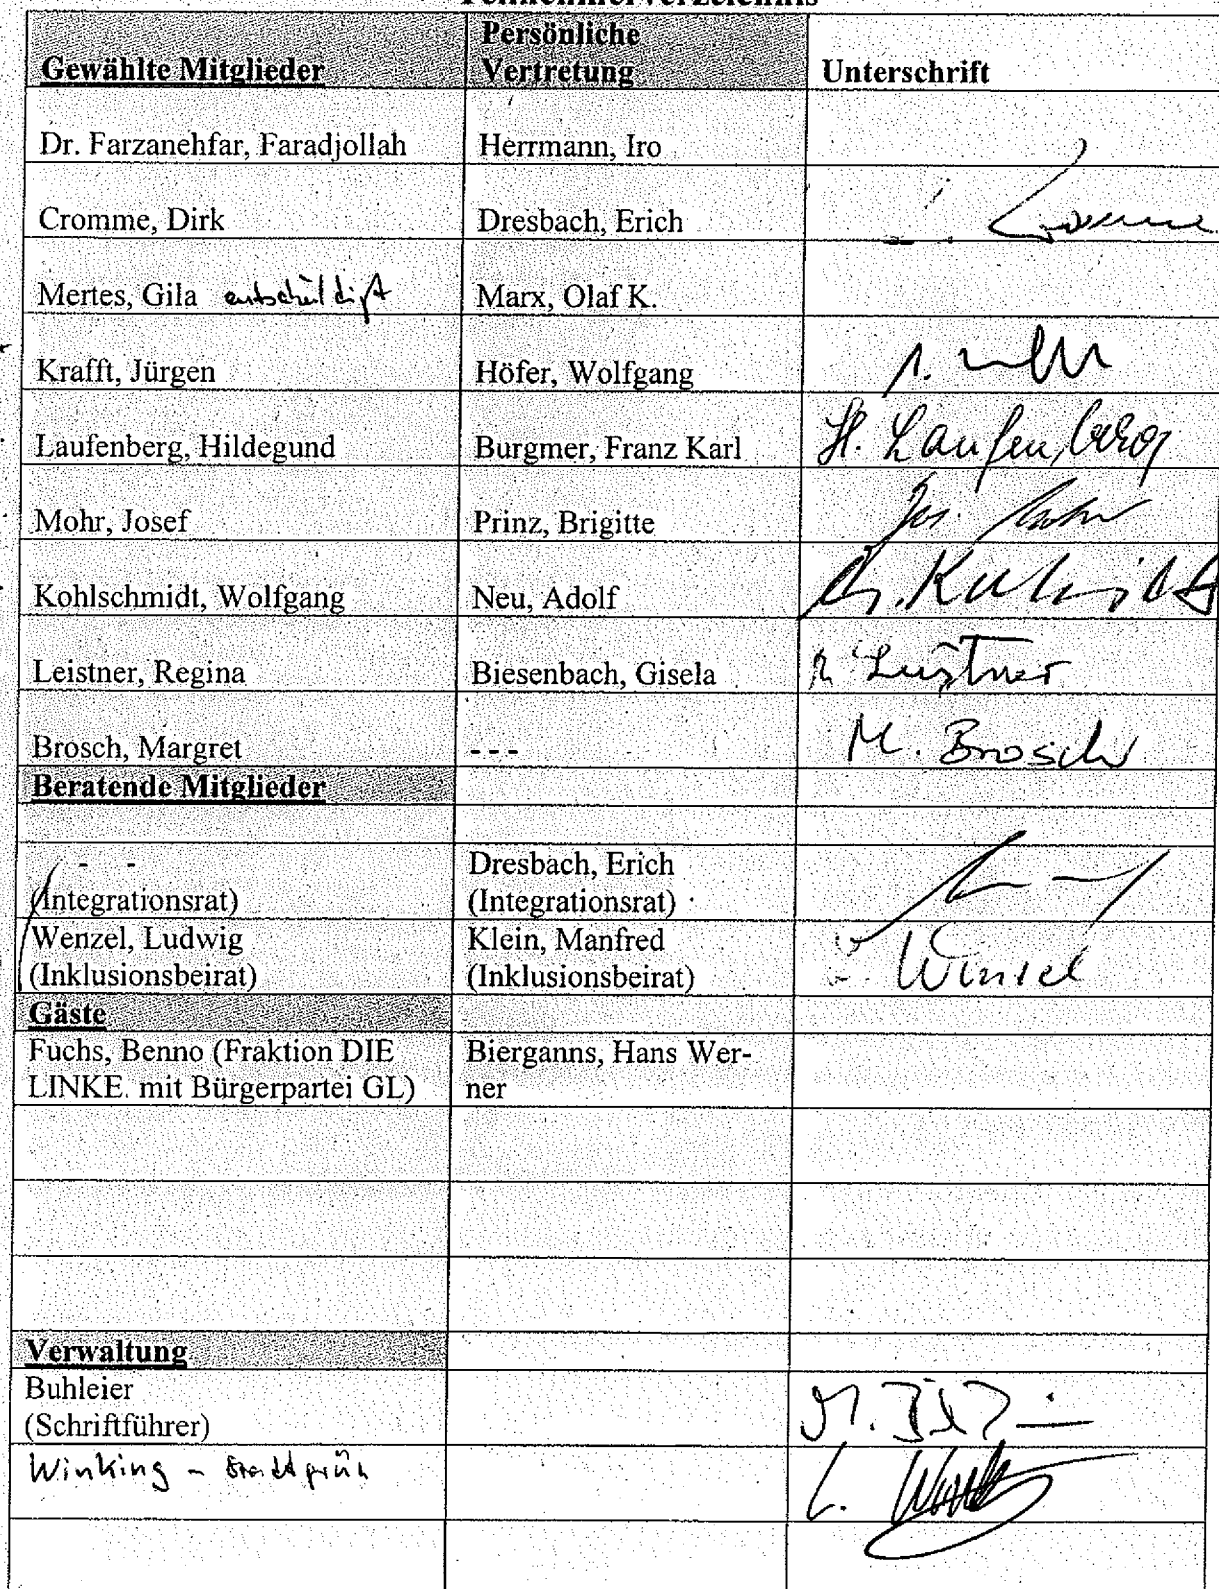 Teilnehmerverzeichnis
Gewählte Mitglieder
Persönliche
Vertretung
Unterschrift
Dr. Farzanehfar, Faradjollah
Herrmann, Iro
Cromme, Dirk
Dresbach, Erich
Mertes, Gila entschuldigt
Marx, Olaf K.
Krafft, Jürgen
Höfer, Wolfgang
Laufenberg, Hildegund
Burgmer, Franz Karl
H. Laufenberg
Mohr, Josef
Prinz, Brigitte
Jos. Mohr
Kohlschmidt, Wolfgang
Neu, Adolf
Leistner, Regina
Biesenbach, Gisela
Leistner
Brosch, Margret
- - -
M. Brosch
Beratende Mitglieder
- - -
(Integrationsrat)
Dresbach, Erich
(Integrationsrat)
Wenzel, Ludwig
(Inklusionsbeirat)
Klein, Manfred
(Inklusionsbeirat)
Gäste
Fuchs, Benno (Fraktion DIE
LINKE. mit Bürgerpartei GL)
Bierganns, Hans Wer-
ner
Verwaltung
Buhleier
(Schriftführer)
Winking - Stadtgrün